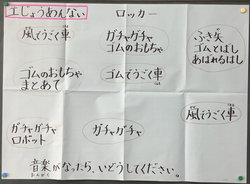 エじょうめんない
ロッカー
風でうごく車
ガチャガチャ
ゴムのおもちゃ
ふき矢
ゴムとばし
あばれるはし
ゴムのおもちゃ
まとあて
ゴムでうごく車
風でうごく車
ガチャガチャ
ロボット
ガチャガチャ
音楽がなったら、いどうしてください。
おんがく